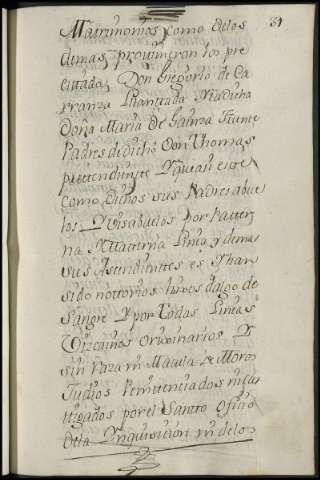 31
Matrimonios, como de los
demas, provinieran los pre
citados, Don Gregorio de Ca
rranza y la dicha
Dona Maria de Gainza
Padres de dicho Don Thomas
pretendiente Y que asi este
como dichos sus Padres abue
los Y Visabuelos por Pater
na Materna Linea y demas
sus Ascendientes es Y han
sido nottorios hixos dalgo de
sangre Y por todas Lineas
Vizcainos Orixinarios Y
sin Raza ni Macula de Moros
Judios Penitenciados ni cas
tigados por el Santo Oficio
de la Ynquisicion ni de los